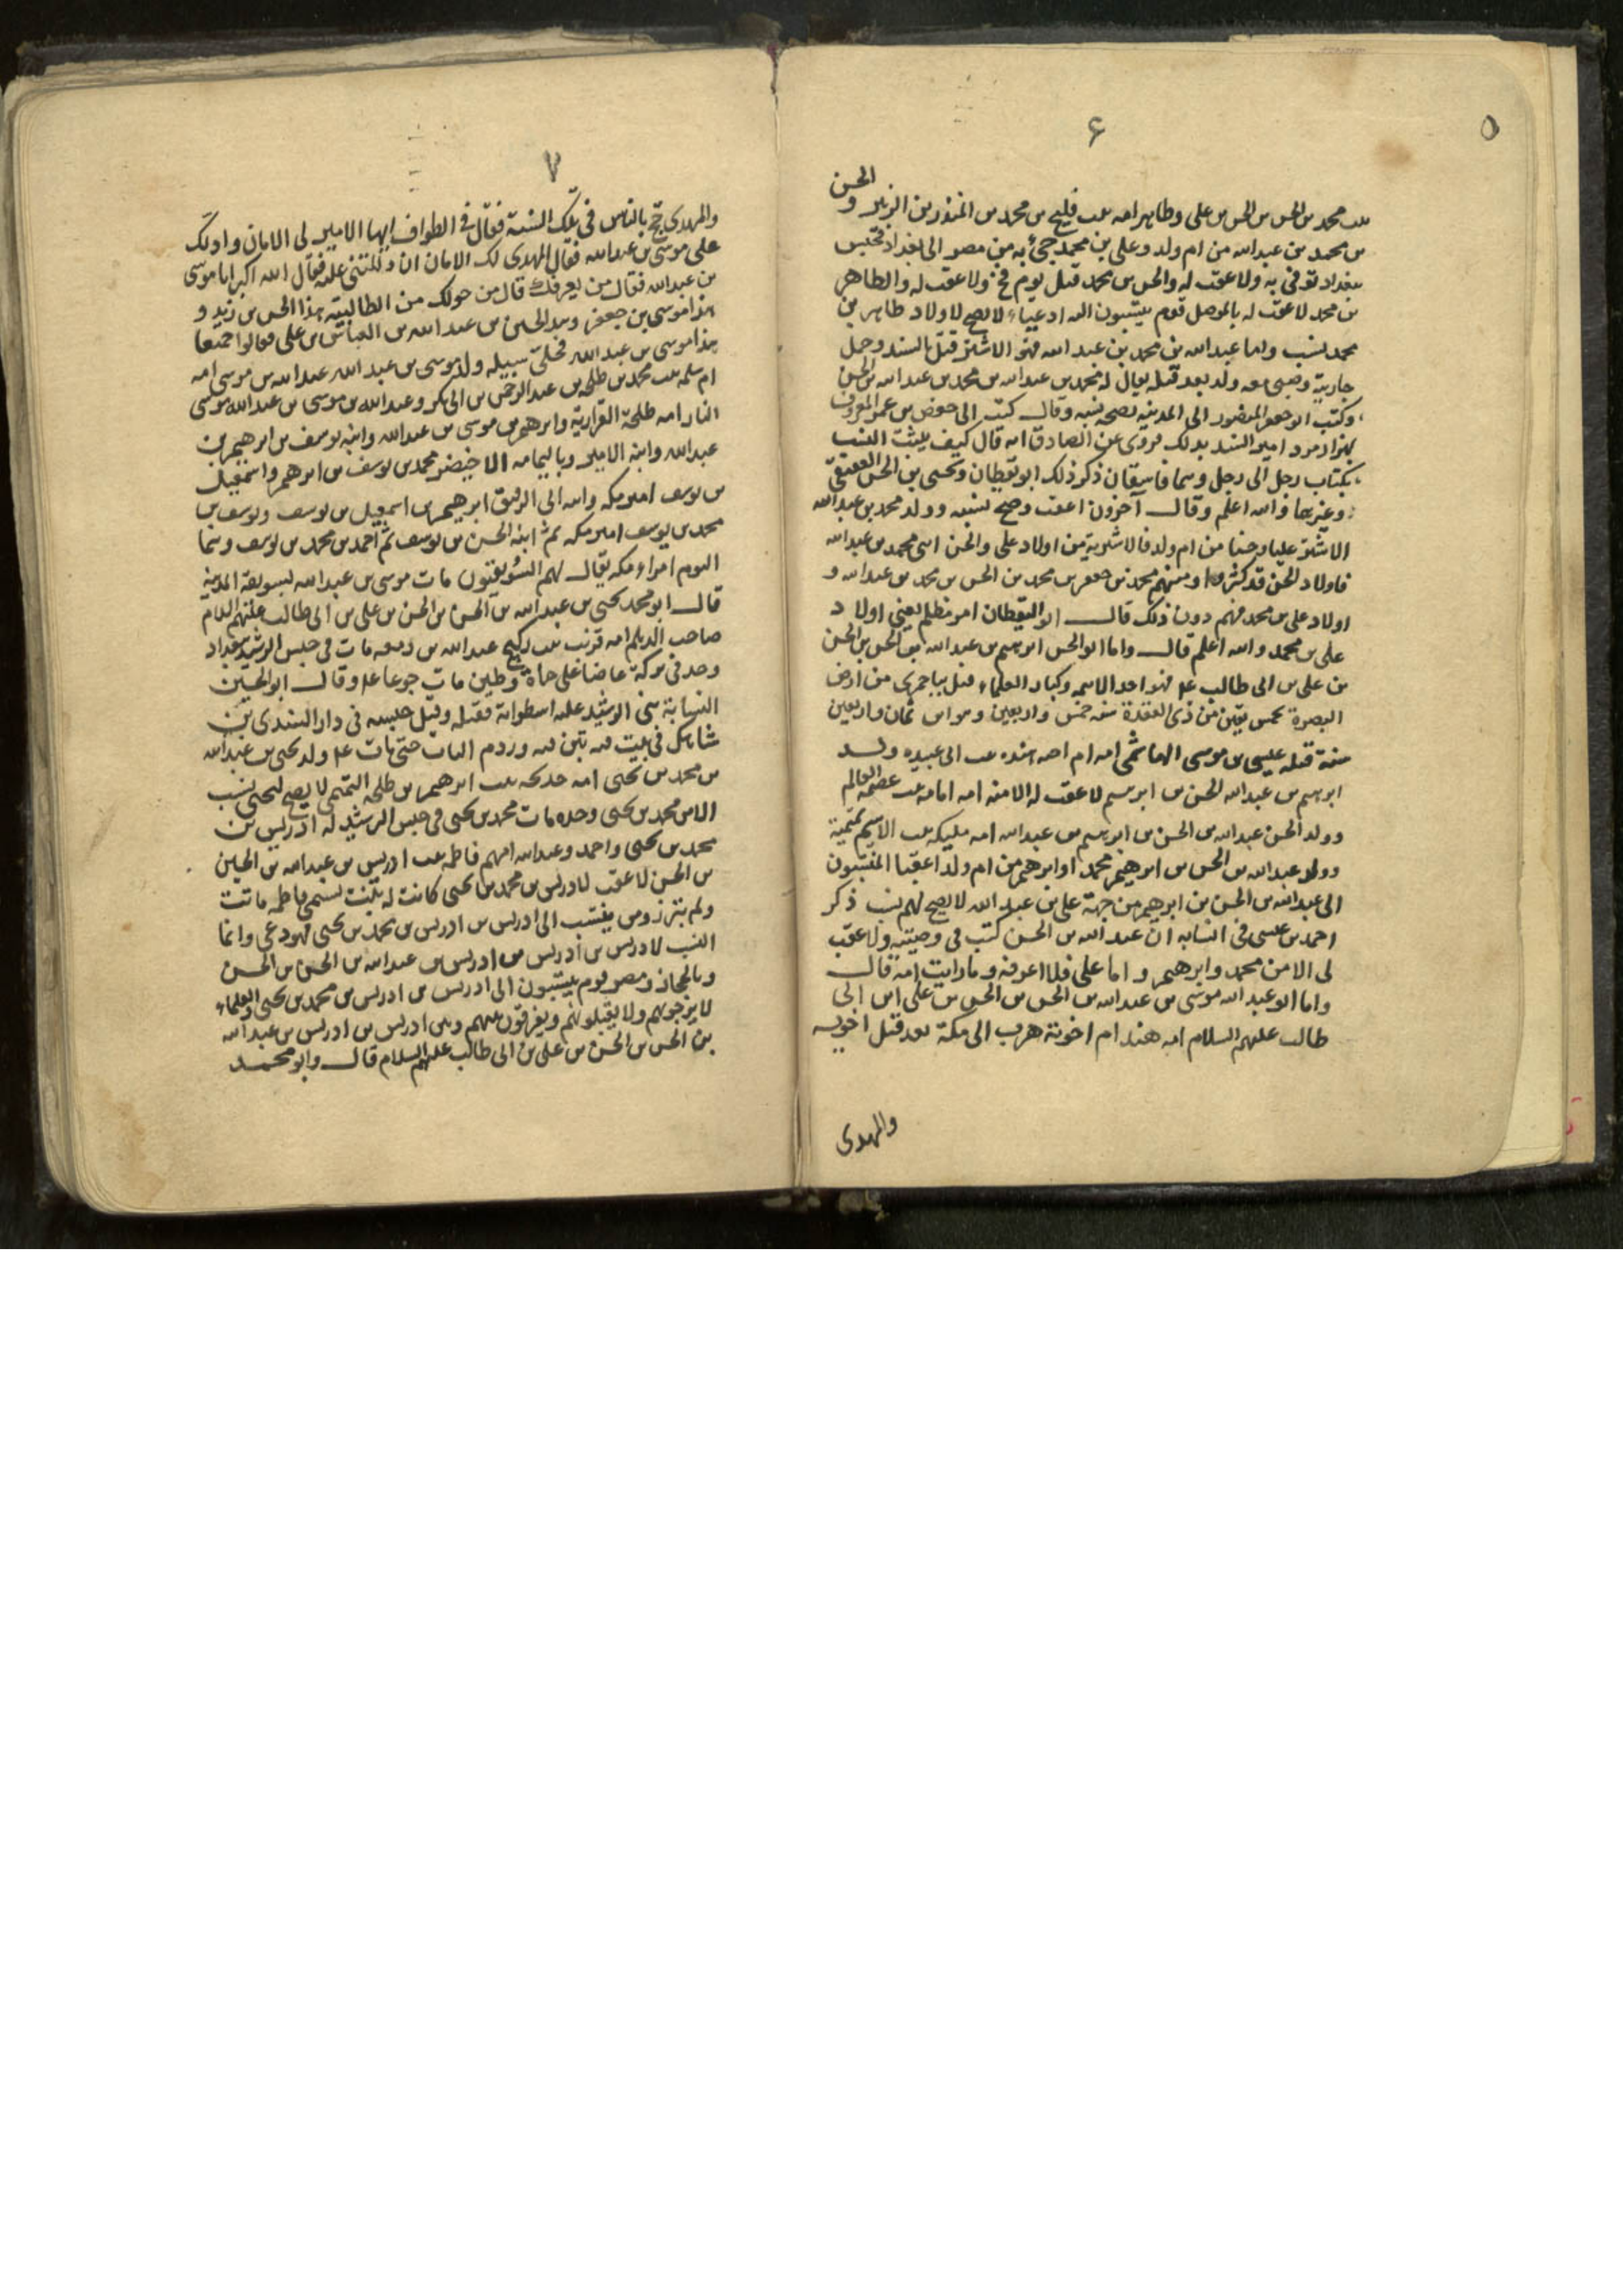 ۵
۶
الحسن
بنت محمد بن الحسن بن الحسن بن علی وطاهر امه بنت فلیح بن محمد بن المنذر بن الزبیر و
بن محمد بن عبدالله من ام ولد وعلی بن محمد جیٔ به من مصر الی بغداد فحبس
ببغداد توفی به ولا عقب له والحسن بن محمد قتل یوم فخ ولا عقب له والطاهر
بن محمد لا عقب له بالموصل قوم ینتسبون الیه ادعیاء لا یصح لاولاد طاهر بن
محمد نسب واما عبدالله بن محمد بن عبدالله فهو الاشتر قتل بالسند وحمل
جاریة وصبی معه ولد بعد قتله یقال له محمد بن عبدالله بن محمد بن عبدالله بن الحسن
وکتب ابو جعفر المنصور الی المدینه بصحه نسبه وقال کتب الی حفص بن عمر المعروف
بهزارمرد امیر السند بذلک فروی عن الصادق انه قال کیف یثبت النسب
بکتاب رجل الی رجل وهما فاسقان ذکر ذلک ابو یقطان ویحیی بن الحسن العقیقی
وغیرهما والله اعلم وقال آخرون اعقب وصح نسبه وولد محمد بن عبدالله
الاشتر علیا وحسنا من ام ولد فالاشتریة من اولاد علی والحسن ابنی محمد بن عبدالله
فاولاد الحسن قد کثروا ومنهم محمد بن جعفر بن محمد بن الحسن بن محمد بن عبدالله و
اولاد علی بن محمد فهم دون ذلک قال ابو الیقطان امر مظلم یعنی اولاد
علی بن محمد والله اعلم قال واما ابو الحسن ابرهیم بن عبدالله بن الحسن بن الحسن
بن علی بن ابی طالب علـ فهو احد الائمه وکبار العلماء قتل بباخمری من ارض
البصرة لخمس بقین من ذی القعدة سنه خمس واربعین وهو ابن ثمان واربعین
سنة قتله عیسی بن موسی الهاشمی امه ام اخیه هند بنت ابی عبیده ولد
ابرهیم بن عبدالله الحسن بن ابرهیم لا عقب له الا منه امه امامه بنت عصمه العالم
وولد الحسن عبدالله بن الحسن بن ابرهیم بن عبدالله امه ملیکه بنت الاشیم تمیمیة
وولد عبدالله بن الحسن بن ابرهیم محمد اوابرهیم من ام ولد اعقبا المنتسبون
الی عبدالله بن الحسن بن ابرهیم من جهة علی بن عبدالله لا یصح لهم نسب ذکر
احمد بن عیسی فی انسابه ان عبدالله بن الحسن کتب فی وصیته ولا عقب
لی الا من محمد وابرهیم واما علی فلا اعرفه وما رایت امه قال
واما ابو عبدالله موسی بن عبدالله بن الحسن بن الحسن بن علی ابن ابی
طالب علیهم السلام امه هند ام اخوته هرب الی مکة بعد قتل اخویه
والمهدی
۷
والمهدی حج بالناس فی تلک السنة فقال فی الطواف ایها الامیر لی الامان وادلک
علی موسی بن عبدالله فقال المهدی لک الامان ان دللتنی علیه فقال الله اکبر انا موسی
بن عبدالله فقال من یعرفک قال من حولک من الطالبیة هذا الحسن بن زید و
هذا موسی بن جعفر وهذا الحسین بن عبدالله بن العباس بن علی فقالوا جمیعا
هذا موسی بن عبدالله فخلی سبیله ولد موسی بن عبدالله عبدالله بن موسی امه
ام سلمه بنت محمد بن طلحه بن عبدالرحمن بن ابی بکر وعبدالله بن موسی بن عبدالله موسی
النار امه طلحة الفزاریة وابرهیم بن موسی بن عبدالله وابنه یوسف بن ابرهیم بن
عبدالله وابنه الامیر وبالیمامه الاخیضر محمد بن یوسف بن ابرهیم واسمعیل
بن یوسف امیر مکه وابنه ابی الرفیق ابرهیم بن اسمعیل بن یوسف ویوسف بن
محمد بن یوسف امیر مکه ثم ابنه الحسن بن یوسف ثم احمد بن محمد بن یوسف وهما
الیوم امراء مکه یقال لهم السویقیون مات موسی بن عبدالله بسویقة المدینة
قال ابو محمد یحیی بن عبدالله بن الحسن بن الحسن بن علی بن ابی طالب علیهم السلام
صاحب الدیلم امه قریبه بنت رکیح عبدالله بن زمعه مات فی حبس الرشید ببغداد
وجد فی برکة عاضا علی حماة وطین مات جوعا علـ وقال ابو الحسین
النسابة بنی الرشید علیه اسطوانة فقتله وقیل حبسه فی دار السندی بن
شاهک فی بیت فیه تبن فیه وردم الباب حتی مات علـ ولد یحیی بن عبدالله
بن محمد بن یحیی امه خدیجه بنت ابرهیم بن طلحه التیمی لا یصح لیحیی نسب
الا من محمد بن یحیی وحده مات محمد بن یحیی فی حبس الرشید له ادریس بن
محمد بن یحیی واحمد وعبدالله امهم فاطمه بنت ادریس بن عبدالله بن الحسین
بن الحسن لا عقب لادریس بن محمد بن یحیی کانت له بنت تسمی فاطمه ماتت
ولم تبرز ومن ینتسب الی ادریس بن ادریس بن محمد بن یحیی فهو دعی وانما
النسب لادریس بن ادریس بن ادریس بن عبدالله بن الحسن بن الحسن
وبالحجاز ومصر قوم ینتسبون الی ادریس بن ادریس بن محمد بن یحیی والعلماء
لا یزوجونهم ولا یقبلونهم ویفرقون بینهم وبین ادریس بن ادریس بن عبدالله
بن الحسن بن الحسن بن علی بن ابی طالب علیهم السلام قال وابو محمد